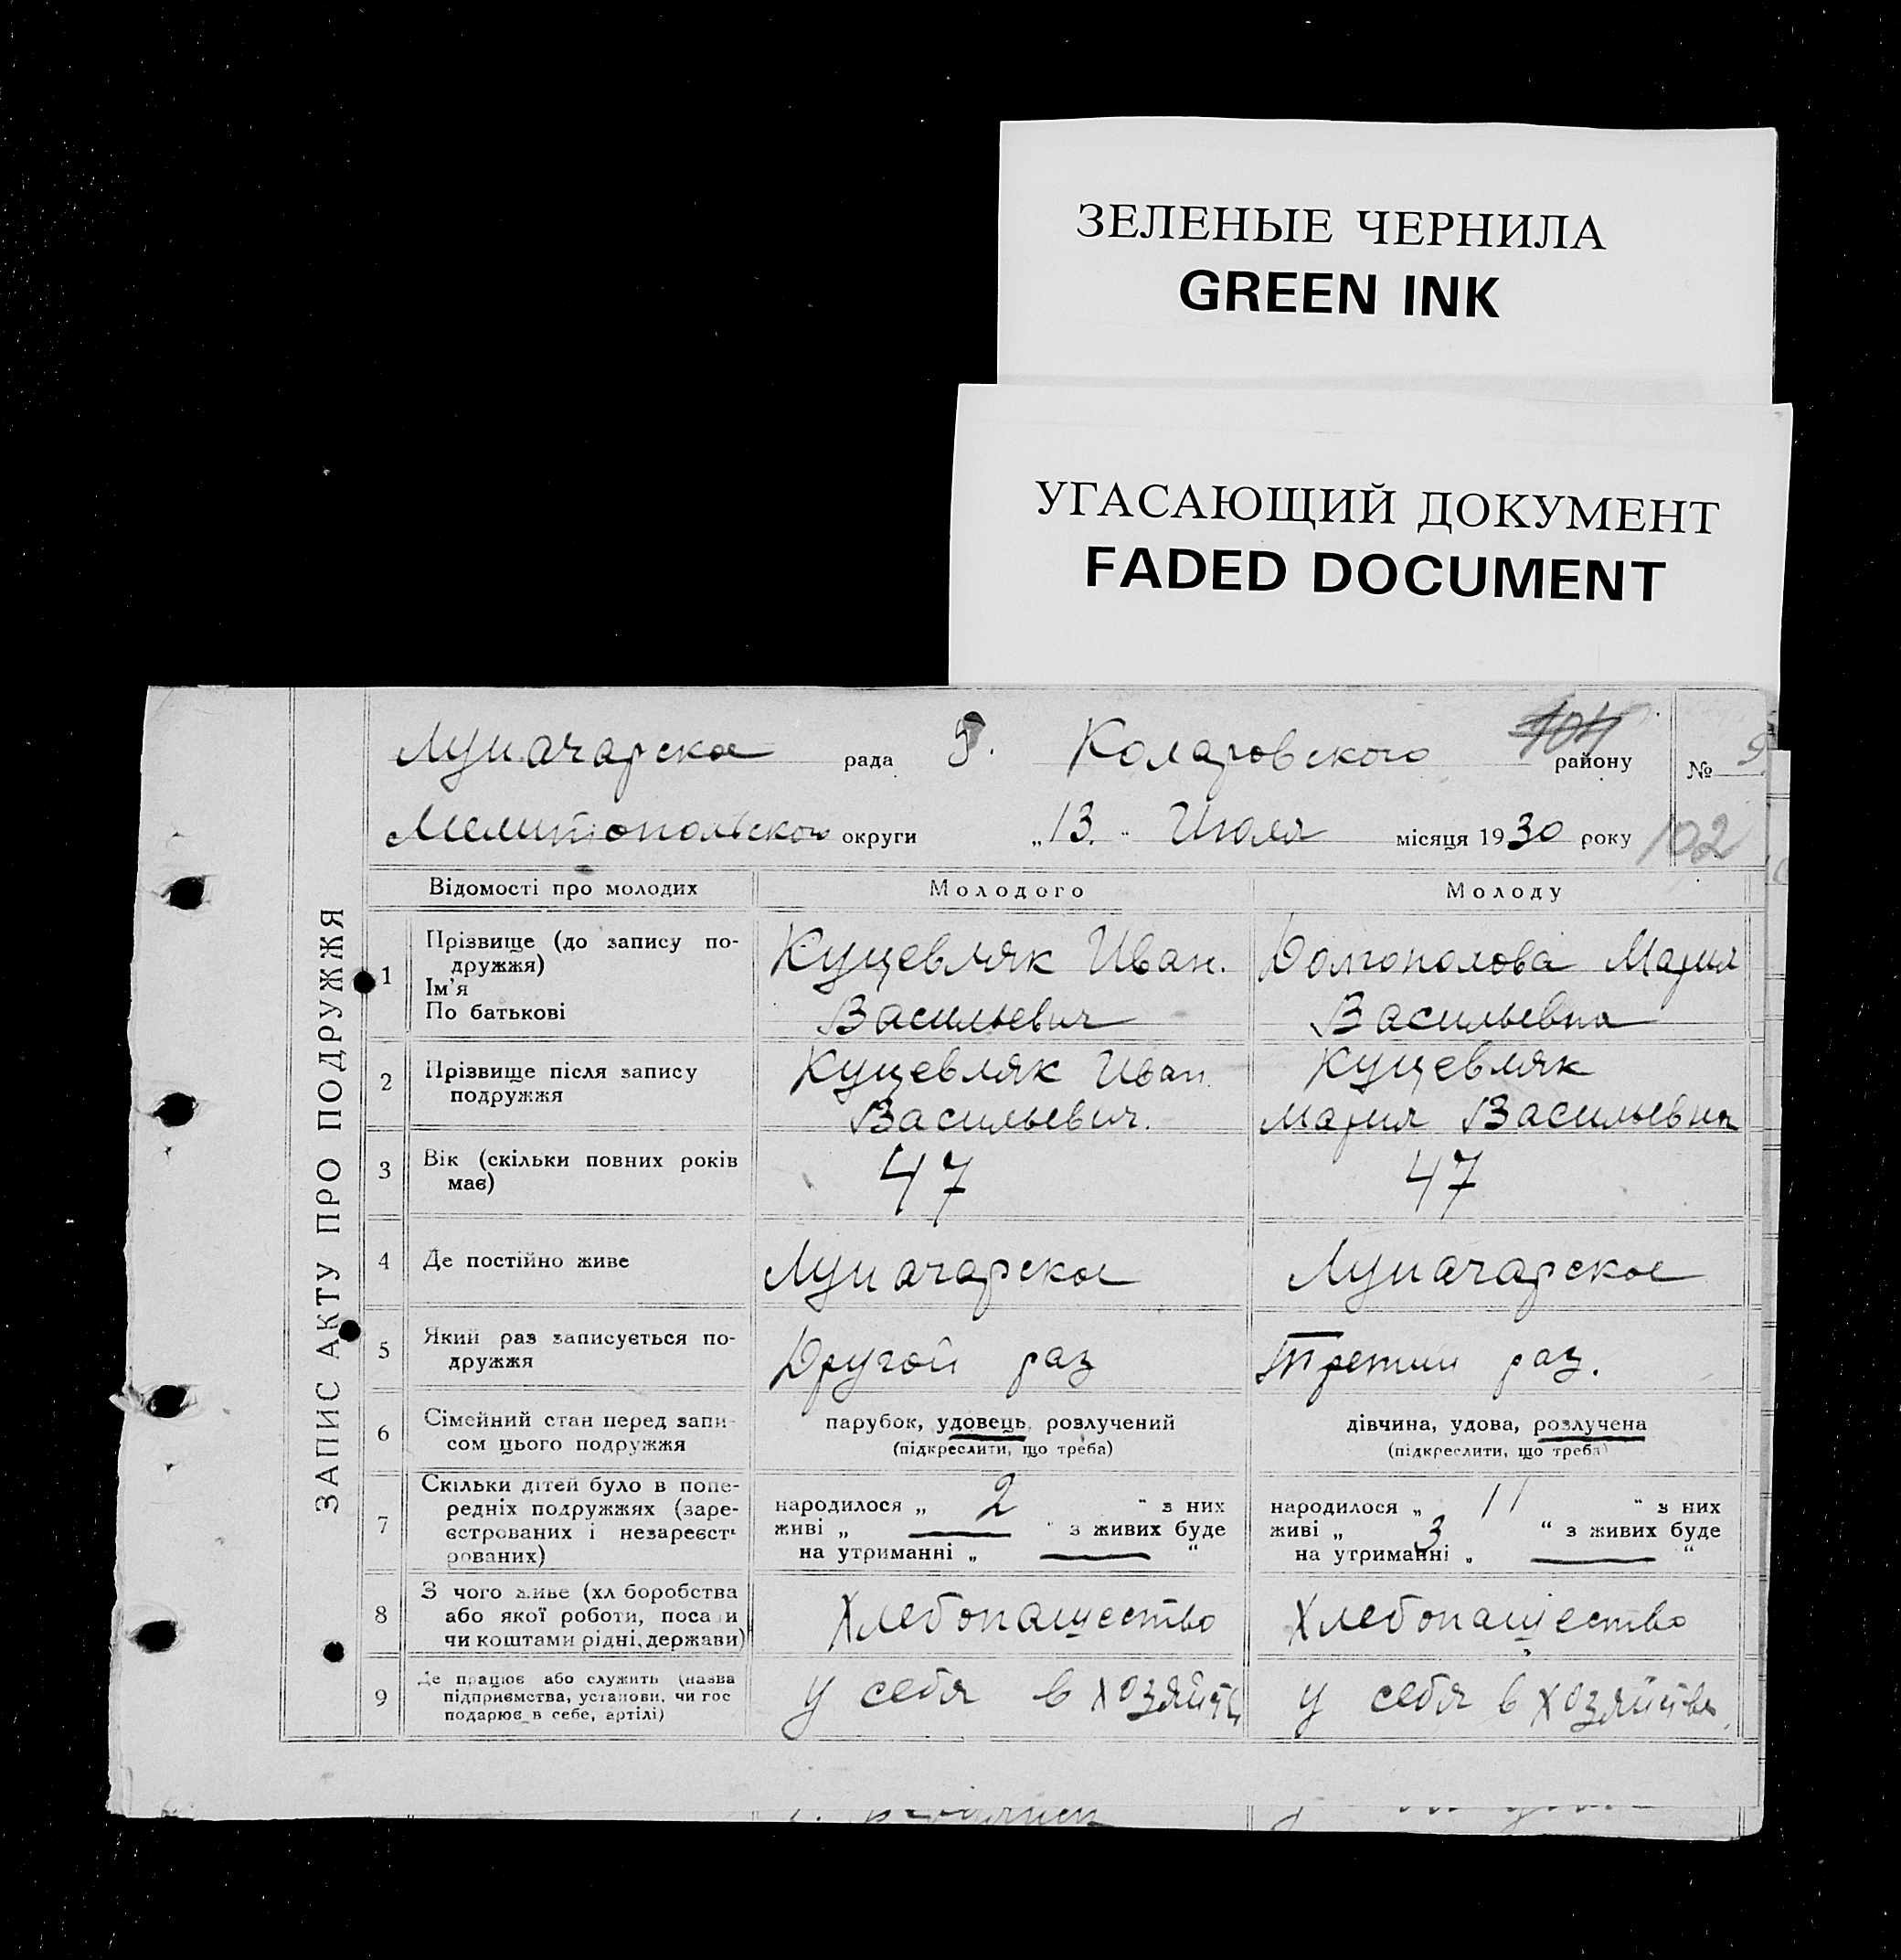 ЗЕЛЕНЫЕ ЧЕРНИЛА
GREEN INK
УГАСАЮЩИЙ ДОКУМЕНТ
FADED DOCUMENT
ЗАПИС АКТУ ПРО ПОДРУЖЖЯ
Луначарское рада Коларовского району № 9
Мелитопольского округи „13." Июля місяця 1930 року 102
Відомості про молодих Молодого Молоду
1 Прізвище (до запису по-
дружжя)
Ім'я
По батькові
Куцевляк Иван.
Васильевич
Долгополова Мария
Васильевна
2 Прізвище після запису
подружжя
Куцевляк Иван
Васильевич.
Куцевляк
Мария Васильевна
3 Вік (скільки повних років
має)
47
47
4 Де постійно живе
Луначарское
Луначарское
5 Який раз записується по-
дружжя
Другой раз
Третий раз.
6 Сімейний стан перед запи-
сом цього подружжя
парубок, удовець, розлучений
(підкреслити, що треба)
дівчина, удова, розлучена
(підкреслити, що треба)
7 Скільки дітей було в попе-
редніх подружжях (заре-
єстрованих і незареєст-
рованих)
народилося „ 2 " з них
живі „ — " з живих буде
на утриманні „ — "
народилося „ 11 " з них
живі „ 3 " з живих буде
на утриманні „ — "
8 З чого живе (хліборобства
або якої роботи, посади
чи коштами рідні, держави)
Хлебопашество
Хлебопащество
9 Де працює або служить (назва
підприємства, установи, чи гос
подарює в себе, артілі)
у себя в хозяйств
у себя в хозяйстве